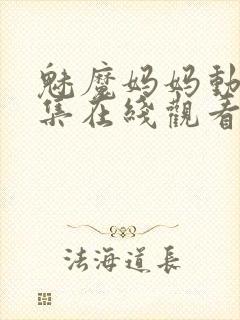 魅魔妈妈動
集在綫觀看
法海道長